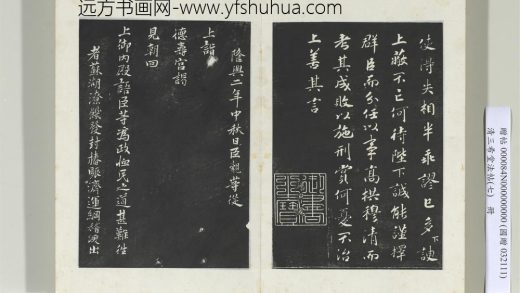 远方书画网-www.yfshuhua.com
使得失相半乖謬已多下諛
上蔽不亡何待陛下誠能謹擇
群臣而分任以事高拱穆清而
考其成敗以施刑賞何憂不治
上善其言
隆興二年中秋日臣
等從
上詣
德壽宮謁
見朝回
上御內殿語臣等爲政恤民之道甚難往
者蘇湖潦饑發封樁賑濟運
出
贈帖 000084N000000000 (國贈 032111)
清三希堂法帖(七) 冊